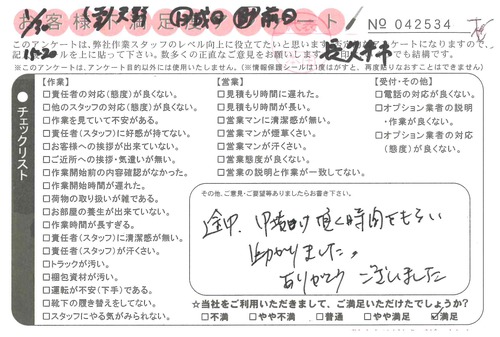 お客様満足度アンケート No 042534
このアンケートは、弊社作業スタッフのレベル向上に役立てたいと思います
記シールを上に貼って下さい。数多くの正直なご意見をお願いします
でも結構です。
※このアンケートは、アンケート目的以外には使用いたしません。
チェックリスト
【作業】
□責任者の対応(態度)が良くない。
□他のスタッフの対応(態度)が良くない。
□作業を見ていて不安がある。
□責任者(スタッフ)に好感が持てない。
□お客様への挨拶が出来ていない。
□ご近所への挨拶・気遣いが無い。
□作業開始前の内容確認がなかった。
□作業開始時間が遅れた。
□荷物の取り扱いが雑である。
□お部屋の養生が出来ていない。
□作業時間が長すぎる。
□責任者(スタッフ)に清潔感が無い。
□責任者(スタッフ)が汗くさい。
□トラックが汚い。
□梱包資材が汚い。
□運転が不安(下手)である。
□靴下の履き替えをしてない。
□スタッフにやる気がみられない。
【営業】
□見積もり時間に遅れた。
□見積もり時間が長い。
□営業マンに清潔感が無い。
□営業マンが煙草くさい。
□営業マンが汗くさい。
□営業態度が良くない。
□営業の説明と作業が一致してない。
【受付・その他】
□電話の対応が良くない。
□オプション業者の説明
・作業が良くない。
□オプション業者の対応
(態度)が良くない。
その他、ご意見・ご要望等ありましたらお書き下さい。
助かりました。
ありがとうございました
☆当社をご利用いただきまして、ご満足いただけたでしょうか？
□不満 □やや不満 □普通 □やや満足 ☑満足